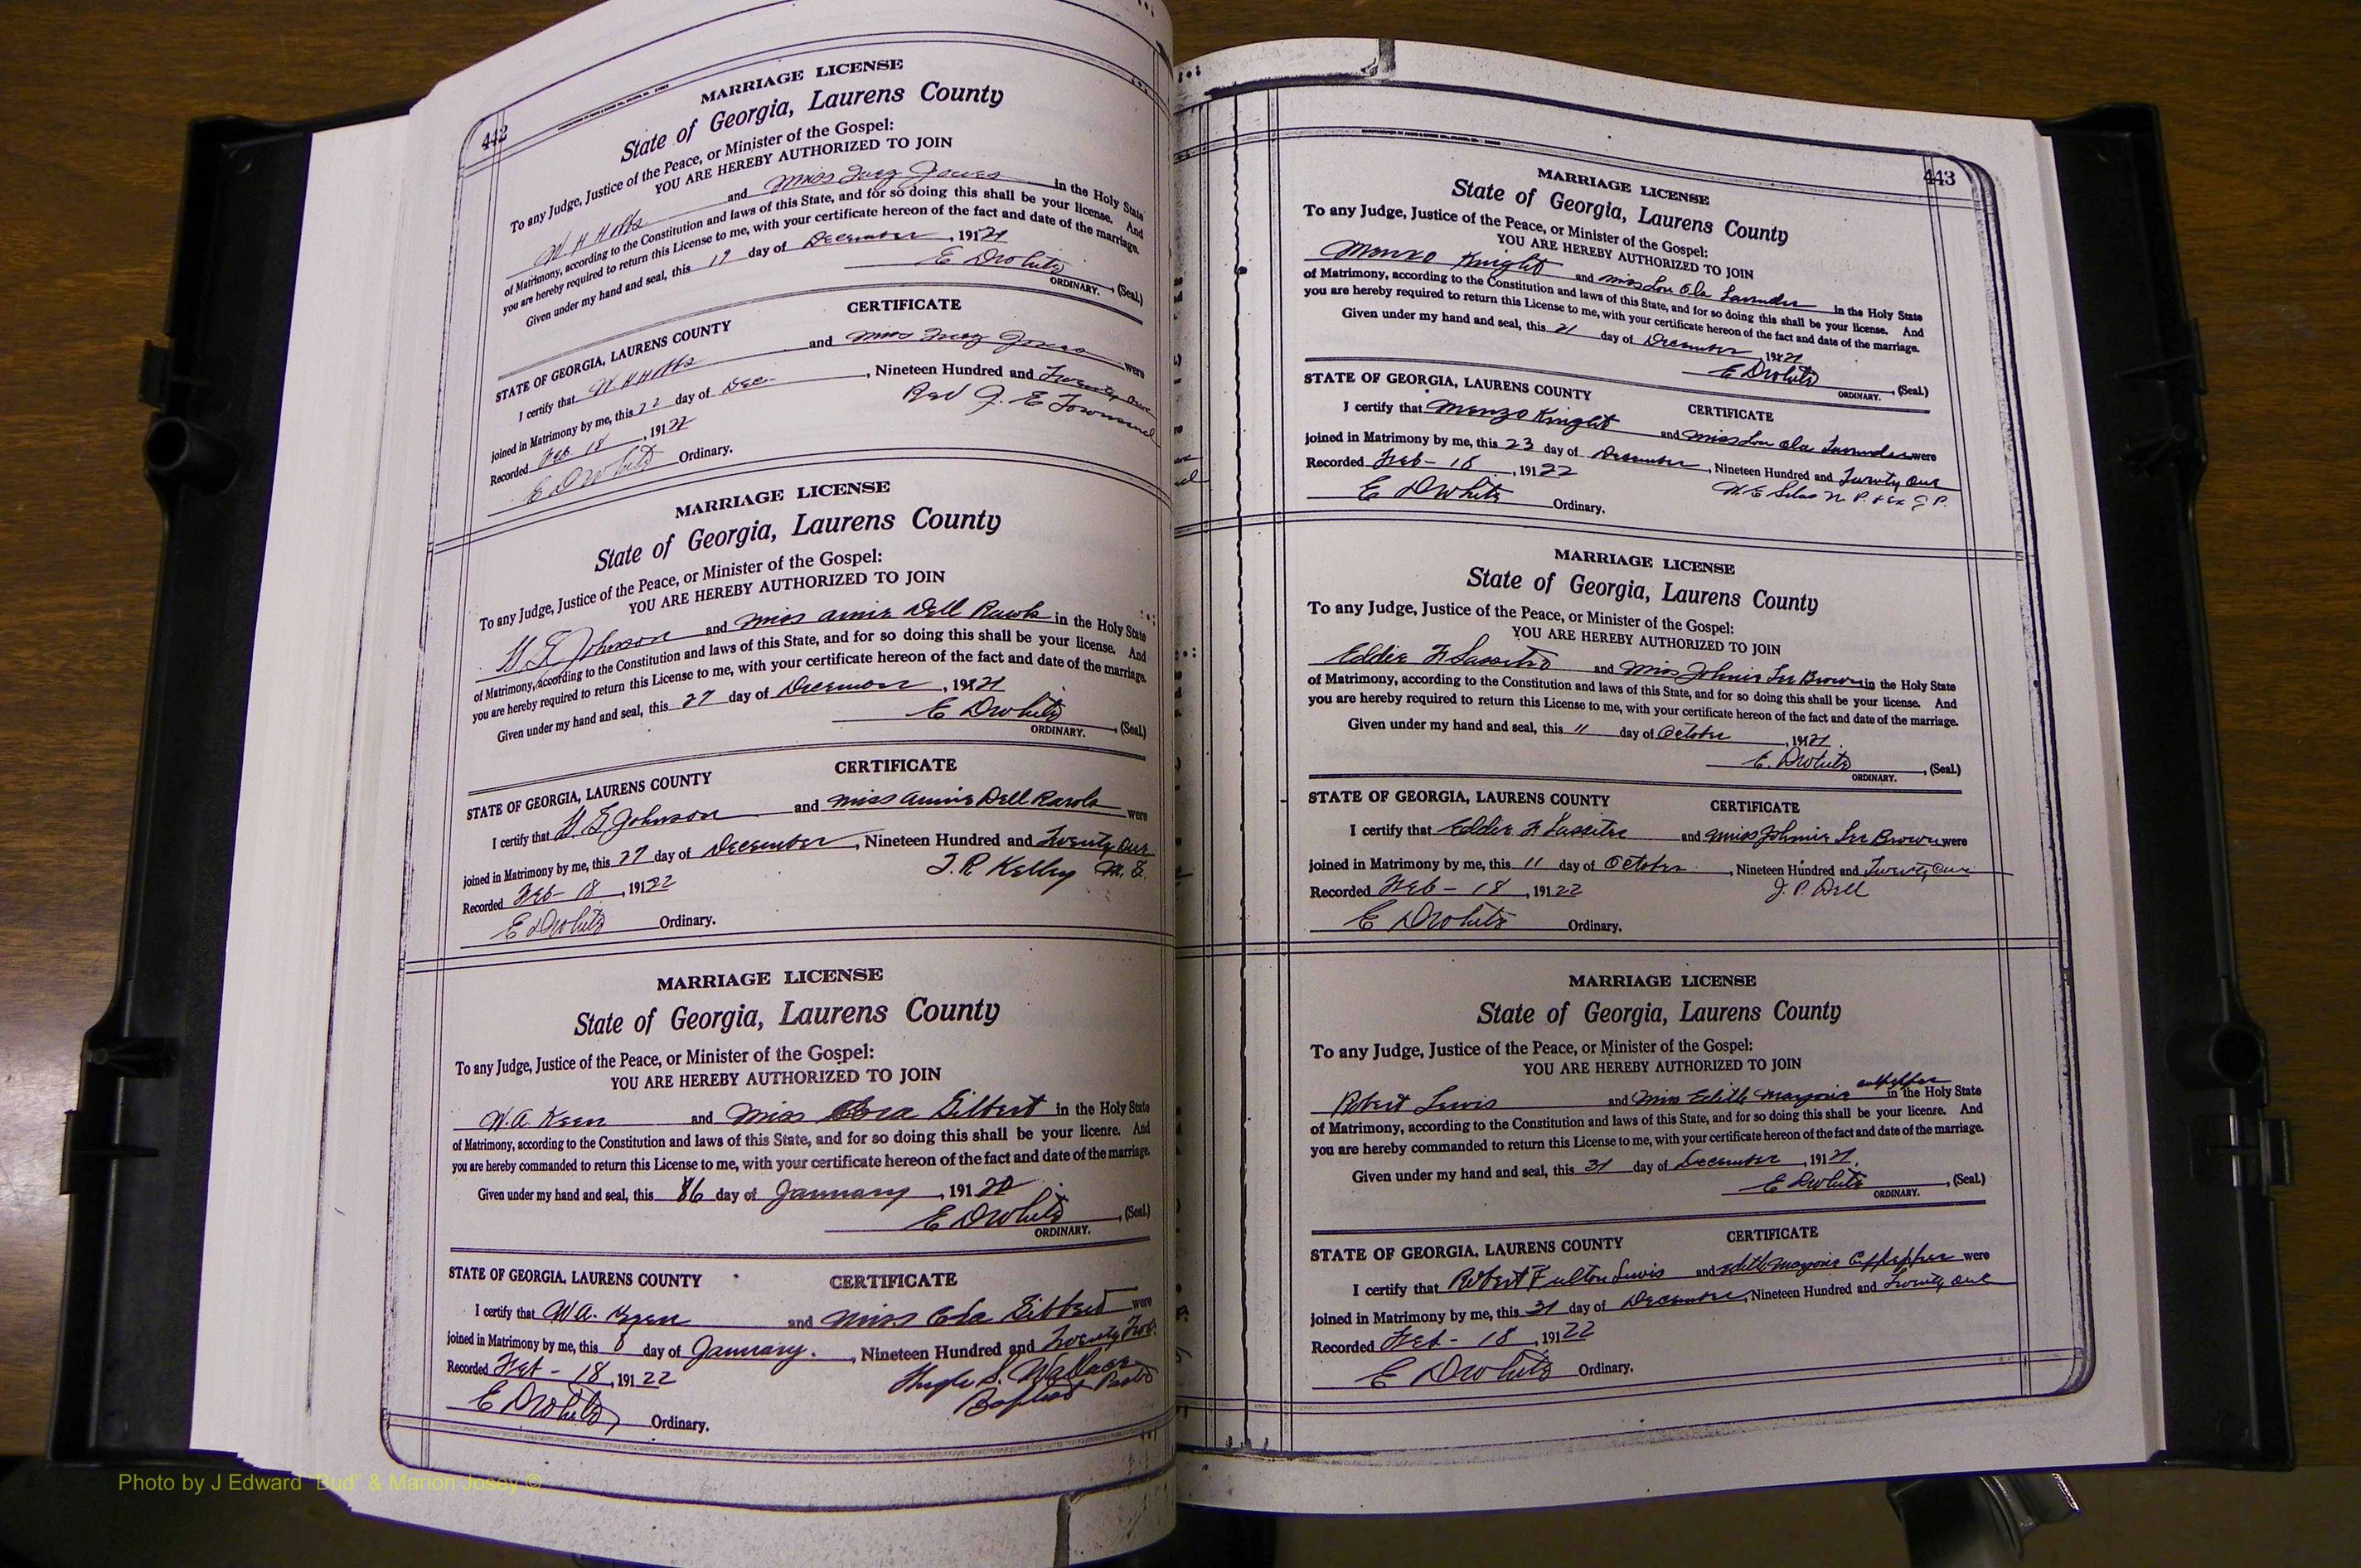 442
MARRIAGE LICENSE
State of Georgia, Laurens County
To any Judge, Justice of the Peace, or Minister of the Gospel:
YOU ARE HEREBY AUTHORIZED TO JOIN
W H and Miss Inez Jones in the Holy State
of Matrimony, according to the Constitution and laws of this State, and for so doing this shall be your license. And
you are hereby required to return this License to me, with your certificate hereon of the fact and date of the marriage.
Given under my hand and seal, this day of December, 19121
E D White, (Seal.)
ORDINARY.
CERTIFICATE
STATE OF GEORGIA, LAURENS COUNTY
I certify that W H and Miss Inez Jones were
joined in Matrimony by me, this 22 day of Dec., Nineteen Hundred and Twenty One
Recorded Feb 18, 19122 Rev J. E Townsend
E D White Ordinary.
MARRIAGE LICENSE
State of Georgia, Laurens County
To any Judge, Justice of the Peace, or Minister of the Gospel:
YOU ARE HEREBY AUTHORIZED TO JOIN
Johnson and Miss Annie Dell Rawls in the Holy State
of Matrimony, according to the Constitution and laws of this State, and for so doing this shall be your license. And
you are hereby required to return this License to me, with your certificate hereon of the fact and date of the marriage.
Given under my hand and seal, this 27 day of December, 19121
E D White, (Seal.)
ORDINARY.
CERTIFICATE
STATE OF GEORGIA, LAURENS COUNTY
I certify that Johnson and Miss Annie Dell Rawls were
joined in Matrimony by me, this 27 day of December, Nineteen Hundred and Twenty One
Recorded Feb - 18, 19122 Kelley M. G.
E D White Ordinary.
MARRIAGE LICENSE
State of Georgia, Laurens County
To any Judge, Justice of the Peace, or Minister of the Gospel:
YOU ARE HEREBY AUTHORIZED TO JOIN
W. A. Keen and Miss Gilbert in the Holy State
of Matrimony, according to the Constitution and laws of this State, and for so doing this shall be your licenre. And
you are hereby commanded to return this License to me, with your certificate hereon of the fact and date of the marriage.
Given under my hand and seal, this day of January, 191
E D White, (Seal.)
ORDINARY.
STATE OF GEORGIA, LAURENS COUNTY CERTIFICATE
I certify that W. A. Keen and Miss were
joined in Matrimony by me, this 8 day of January., Nineteen Hundred and Twenty Two.
Recorded Feb - 18, 19122 S. Wallace
Baptist
E D White Ordinary.
443
MARRIAGE LICENSE
State of Georgia, Laurens County
To any Judge, Justice of the Peace, or Minister of the Gospel:
YOU ARE HEREBY AUTHORIZED TO JOIN
Menzo Knight and Miss Lou Ola in the Holy State
of Matrimony, according to the Constitution and laws of this State, and for so doing this shall be your license. And
you are hereby required to return this License to me, with your certificate hereon of the fact and date of the marriage.
Given under my hand and seal, this 21 day of December, 19121
E D White, (Seal.)
ORDINARY.
STATE OF GEORGIA, LAURENS COUNTY CERTIFICATE
I certify that Menzo Knight and Miss Lou Ola were
joined in Matrimony by me, this 23 day of December, Nineteen Hundred and Twenty One
Recorded Feb - 18, 19122 N. P. & Ex J P.
E D White Ordinary.
MARRIAGE LICENSE
State of Georgia, Laurens County
To any Judge, Justice of the Peace, or Minister of the Gospel:
YOU ARE HEREBY AUTHORIZED TO JOIN
Eddie F Lassiter and Miss Johnie Lee Brown in the Holy State
of Matrimony, according to the Constitution and laws of this State, and for so doing this shall be your license. And
you are hereby required to return this License to me, with your certificate hereon of the fact and date of the marriage.
Given under my hand and seal, this 11 day of October, 19121.
E. D White, (Seal.)
ORDINARY.
STATE OF GEORGIA, LAURENS COUNTY CERTIFICATE
I certify that Eddie F Lassiter and Miss Johnie Lee Brown were
joined in Matrimony by me, this 11 day of October, Nineteen Hundred and Twenty One
Recorded Feb - 18, 19122 J. P. Dell
E D White Ordinary.
MARRIAGE LICENSE
State of Georgia, Laurens County
To any Judge, Justice of the Peace, or Minister of the Gospel:
YOU ARE HEREBY AUTHORIZED TO JOIN
Robert Lewis and Miss Edith Marjorie Culpepper in the Holy State
of Matrimony, according to the Constitution and laws of this State, and for so doing this shall be your licenre. And
you are hereby commanded to return this License to me, with your certificate hereon of the fact and date of the marriage.
Given under my hand and seal, this 31 day of December, 19121.
E D White, (Seal.)
ORDINARY.
STATE OF GEORGIA, LAURENS COUNTY CERTIFICATE
I certify that Robert Fulton Lewis and Edith Marjorie Culpepper were
joined in Matrimony by me, this 31 day of December, Nineteen Hundred and Twenty One
Recorded Feb - 18, 19122
E D White Ordinary.
Photo by J Edward "Bud" & Marion Josey ©